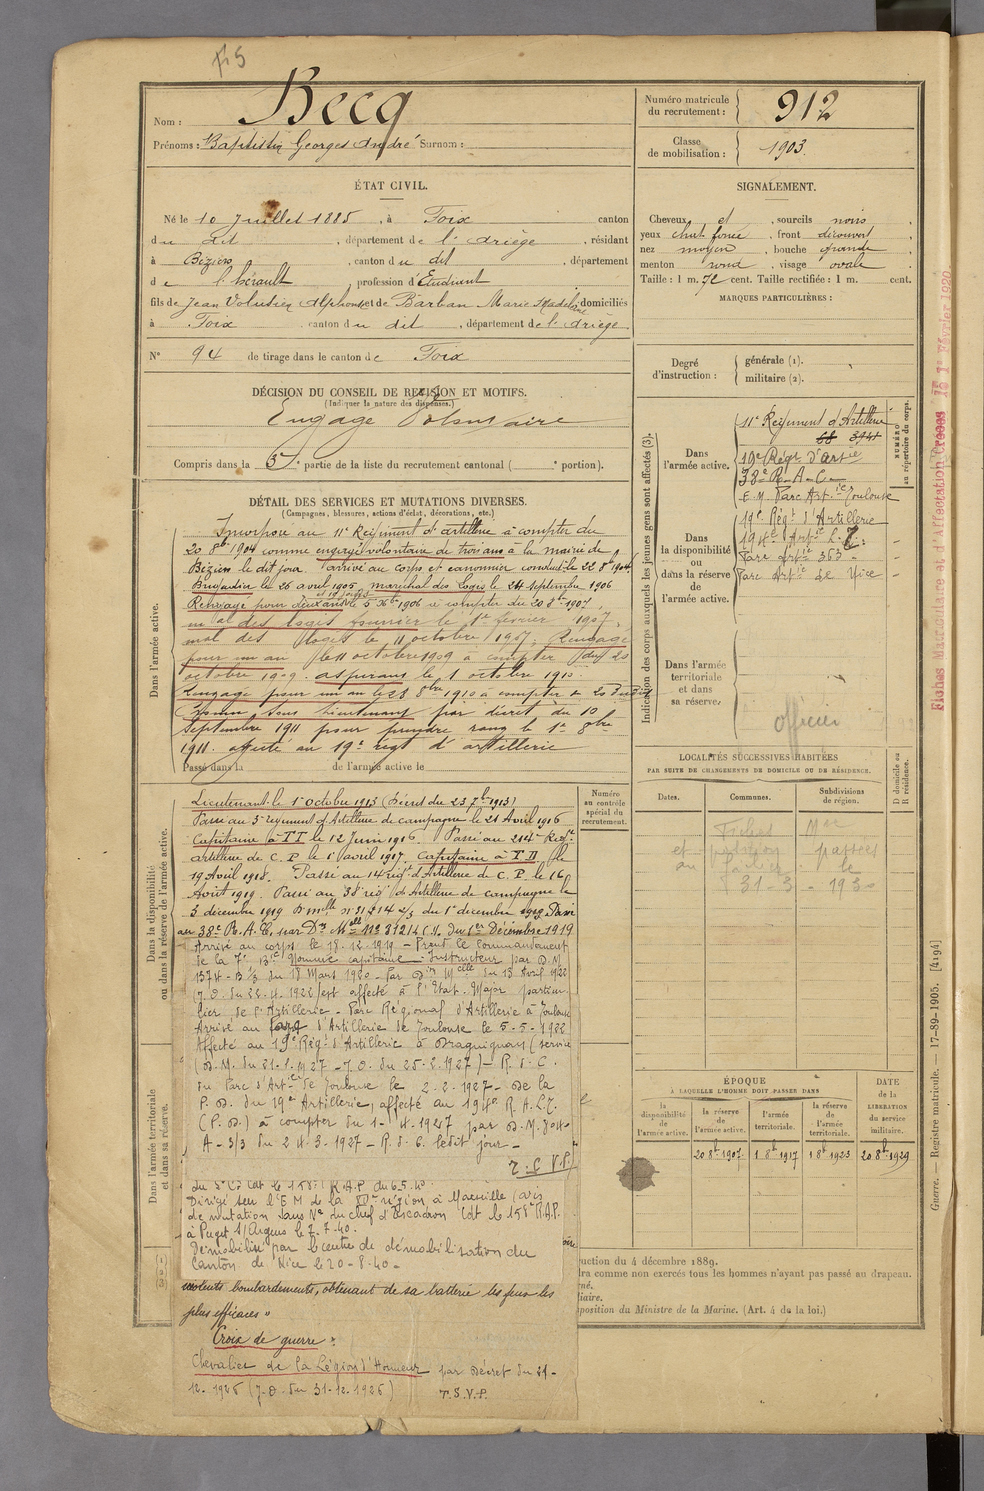 Nom : Becq
Prénoms : Baptistin Georges André Surnom :
Numéro matricule
du recrutement : 912
Classe
de mobilisation : 1903
ÉTAT CIVIL.
Né le 10 Juillet 1885, à Foix canton
du dit, département de l'Ariège, résidant
à Béziers, canton du dit, département
de l'hérault, profession d'Étudiant
fils de Jean Volusien Alphonse et de Barbau Marie Madeleine domiciliés
à Foix canton du dit, département de l'Ariège
N° 94 de tirage dans le canton de Foix
SIGNALEMENT.
Cheveux et, sourcils noirs
yeux chat foncé, front découvert
nez moyen, bouche grande
menton rond, visage ovale
Taille : 1 m. 72 cent. Taille rectifiée : 1 m. cent.
MARQUES PARTICULIÈRES :
Degré
d'instruction :
générale (1).
militaire (2).
DÉCISION DU CONSEIL DE REVISION ET MOTIFS.
(Indiquer la nature des dispenses.)
Engagé Volontaire
Compris dans la 5e partie de la liste du recrutement cantonal ( e portion).
DÉTAIL DES SERVICES ET MUTATIONS DIVERSES.
(Campagnes, blessures, actions d'éclat, décorations, etc.)
Dans l'armée active.
Incorporé au 11e Régiment d'artillerie à compter du
20 8bre 1904 comme engagé volontaire de trois ans à la mairie de
Béziers le dit jour. arrivé au corps et canonnier conduct. le 22 8bre 1904
Brigadier le 26 avril 1905, maréchal des Logis le 24 septembre 1906
Rengagé pour deux ans le 5 Xbre 1906 à compter du 20 8bre 1907.
mal des logis fourrier le 1er février 1907.
mal des logis le 11 octobre 1907. Rengagé
pour un an le 11 octobre 1909 à compter du 20
octobre 1909. aspirant le 1 octobre 1910.
Rengagé pour un an le 23 8bre 1910 à compter du 20 dudit
Nommé sous lieutenant par décret du 10
Septembre 1911 pour prendre rang le 1er 8bre
1911. affecté au 19e régt d'artillerie
Passé dans la de l'armée active le
Dans la disponibilité
ou dans la réserve de l'armée active.
Lieutenant le 1er Octobre 1913 (Décret du 23 7bre 1913)
Passé au 5e régiment d'Artillerie de campagne le 21 Avril 1916
Capitaine à T T le 12 Juin 1916. Passé au 214e Régt
artillerie de C. P. le 1er avril 1917. Capitaine à T D le
19 Avril 1918. Passé au 14e régt d'Artillerie de C. P. le 16
Août 1919. Passé au 38e régt d'Artillerie de campagne le
3 décembre 1919 D. Mlle n° 31214 2/3 du 1er décembre 1919 Passé
au 38e R. A. C. par Dn Mlle N° 31214 C.M. du 1er Décembre 1919
Arrivé au corps le 18.12.1919 - Prend le commandement
de la 7e Bie Nommé capitaine - Instructeur par D.M.
1374 - B 1/3 du 18 Mars 1920 - Par Dn Melle du 13 Avril 1922
(J.O. du 22.4.1922) est affecté à l'Etat-Major particu
lier de l'Artillerie - Parc Régional d'Artillerie à Toulouse
Arrivé au Parc d'Artillerie de Toulouse le 5-5-1922
Affecté au 19e Régt d'Artillerie à Draguignan (service
(D.M. du 21.1.1927 - J.O. du 25.2.1927) - R. d. C.
du Parc d'Artie de Toulouse le 2-2-1927 - De la
P. D. du 19e Artillerie, affecté au 194e R.A.L.T.
(P. D.) à compter du 1-4-1927 par D.M.
A - 3/3 du 24-3-1927 - R. d. C. ledit jour -
T. S. V. P.
Dans l'armée territoriale
et dans sa réserve.
Dirigé sur l'E M de la XVe région à Marseille (avis
de mutation sans N° du chef d'Escadron Cdt le 158e R.A.P.
à Puget s/Argens le 2-7-40.
Démobilisé par le centre de démobilisation du
Canton de Nice le 20-8-40 -
violents bombardements, obtenant de sa batterie les feux les
plus efficaces »
Croix de guerre
Chevalier de la Légion d'Honneur par Décret du 21-
12-1926 (J.O. du 31-12-1926)
T.S.V.P.
Numéro
au contrôle
spécial du
recrutement.
Indication des corps auxquels les jeunes gens sont affectés (3).
NUMÉRO
au répertoire du corps.
Dans
l'armée active.
11e Régiment d'Artillerie
68 3941
19e Régt d'artie
38e R-A-C-
E.M. Parc Art.ie Toulouse
Dans
la disponibilité
ou
dans la réserve
de
l'armée active.
19e Régt d'Artillerie
194e d'Artie L.T.
Parc Artie 363 -
Parc Artie de Nice
Dans l'armée
territoriale
et dans
sa réserve.
officier
LOCALITÉS SUCCESSIVES HABITÉES
PAR SUITE DE CHANGEMENTS DE DOMICILE OU DE RÉSIDENCE.
Dates.
Communes.
Subdivisions
de région.
D domicile ou
R résidence.
Fiches Mle
et position passées
au fichier le
31-3-1930
ÉPOQUE
À LAQUELLE L'HOMME DOIT PASSER DANS
la
disponibilité
de
l'armée active.
la réserve
de
l'armée active.
l'armée
territoriale.
la réserve
de
l'armée
territoriale.
DATE
de la
LIBÉRATION
du service
militaire.
20 8bre 1907
1 8bre 1917
1 8bre 1923
20 8bre 1929
(1)
(2)
(3)
ruction du 4 décembre 1889.
dra comme non exercés tous les hommes n'ayant pas passé au drapeau.
position du Ministre de la Marine. (Art. 4 de la loi.)
Guerre. — Registre matricule. — 17-89-1905. [4194]
Fiches Matriculaire et d'Affectation Créées le 1er Février 1920